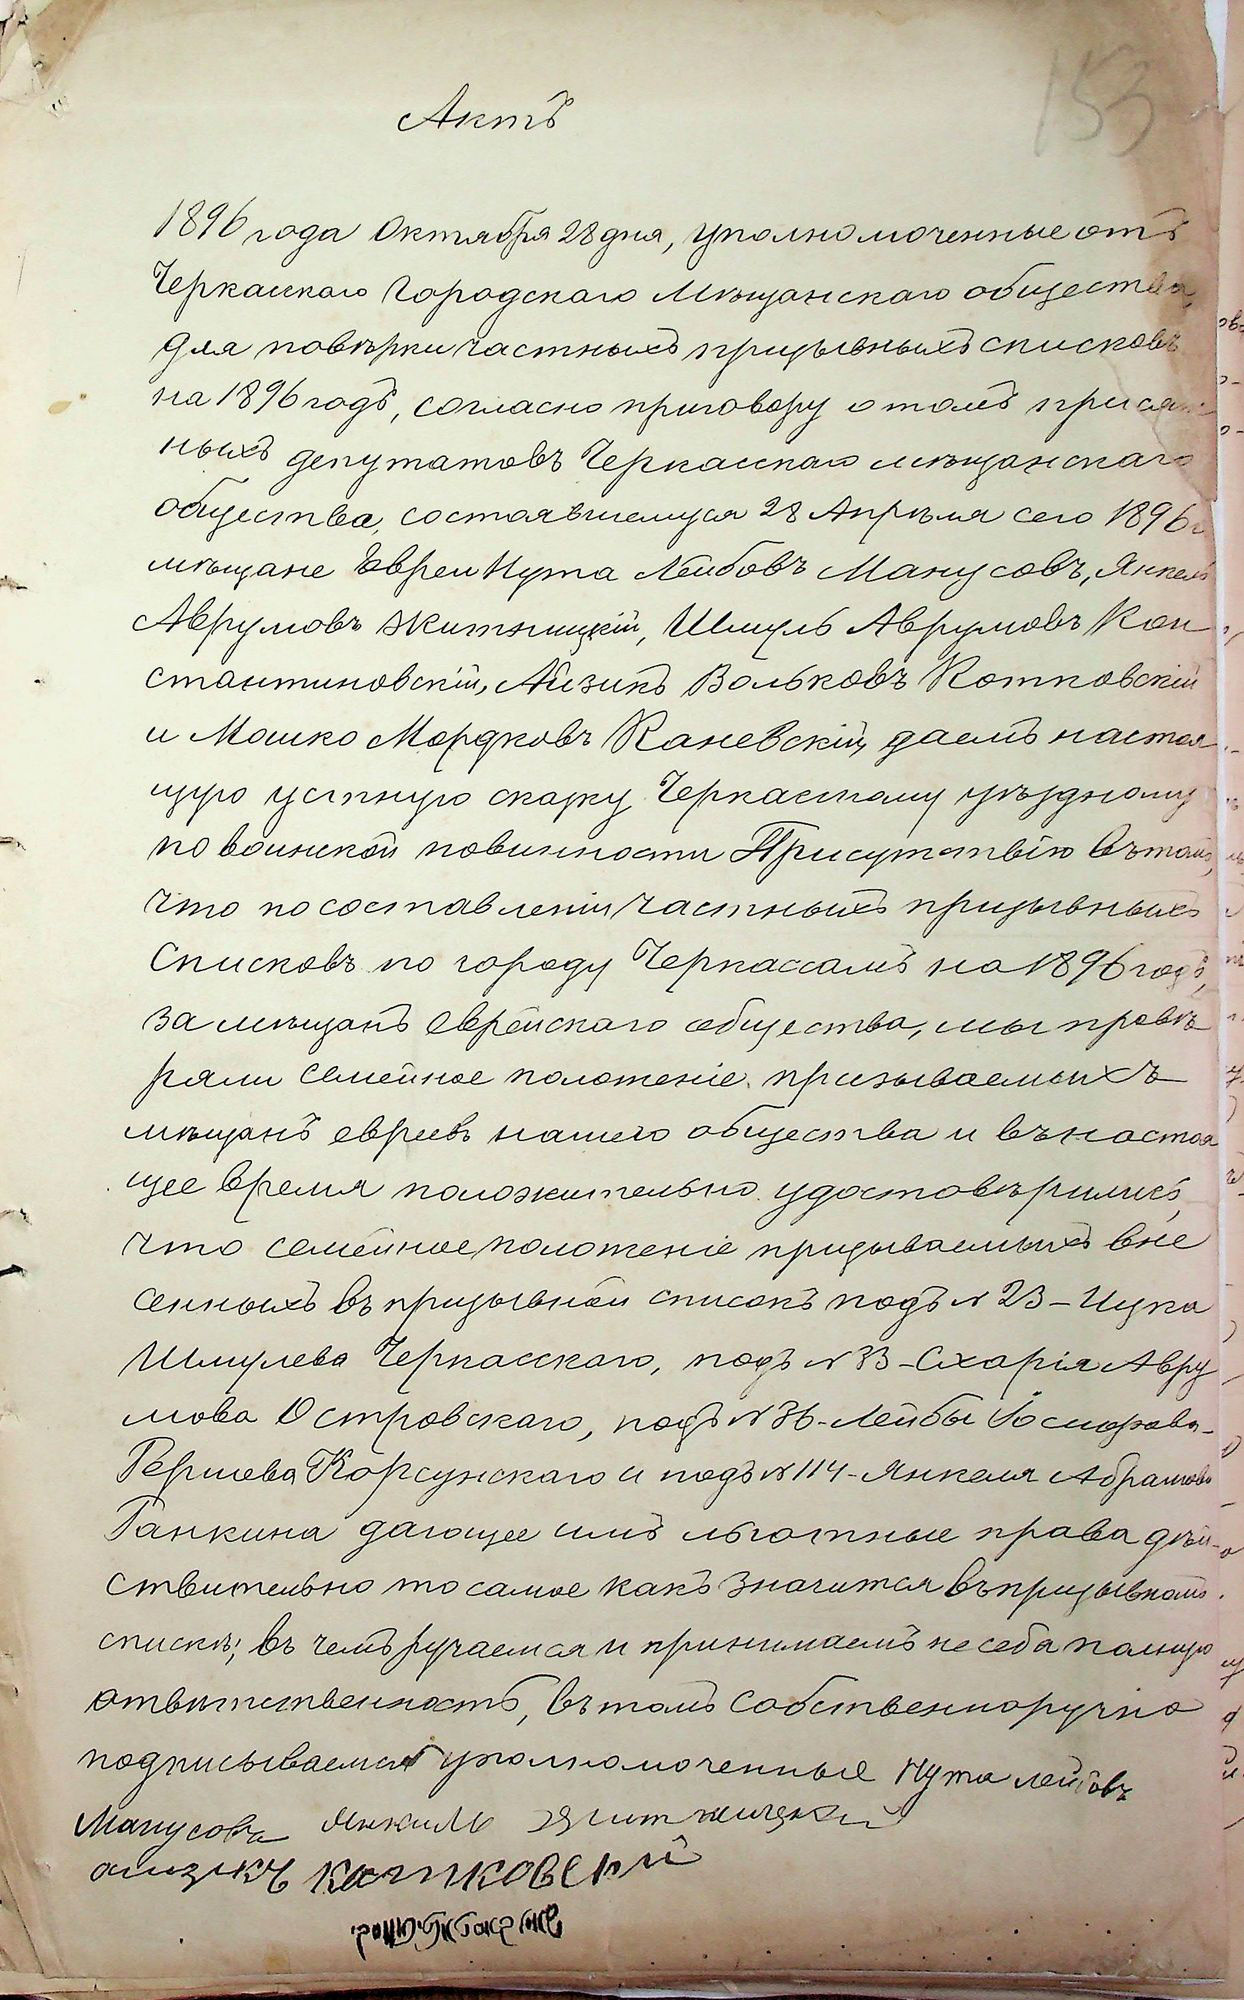 153
Актъ
1896 года Октября 28 дня, уполномоченные отъ
Черкасскаго Городскаго Мѣщанскаго общества,
для повѣрки частныхъ призывныхъ списковъ
на 1896 годъ, согласно приговору о томъ присяж
ныхъ депутатовъ Черкасскаго мѣщанскаго
общества, состоявшемуся 28 Апрѣля сего 1896 г
мѣщане Евреи Нута Лейбовъ Манусовъ, Янкель
Аврумовъ Житницкій, Шмуль Аврумовъ Кон
стантиновскій, Айзикъ Вольковъ Котковскій
и Мошко Мордковъ Каневскій, даемъ настоя
щую устную сказку Черкасскому уѣздному
по воинской повинности Присутствію въ томъ,
что по составленіи частныхъ призывныхъ
списковъ по городу Черкассамъ на 1896 годъ,
за мѣщанъ еврейскаго общества, мы провѣ
ряли семейное положеніе призываемыхъ
мѣщанъ евреевъ нашего общества и въ настоя
щее время положительно удостовѣрились,
что семейное положеніе призываемыхъ вне
сенныхъ въ призывной списокъ подъ № 23 – Ицка
Шмулева Черкасскаго, подъ № 33 – Схарія Авру
мова Островскаго, подъ № 36 – Лейбы Іосифова-
Гершева Корсунскаго и подъ № 114 – Янкеля Абрамова
Ганкина дающее имъ льготные права дѣй-
ствительно то самое какъ значится въ призывномъ
спискѣ; въ чемъ ручаемся и принимаемъ на себя полную
отвѣтственность, въ томъ собственноручно
подписываемся уполномоченные Нута лейбовъ
Манусовъ Янкиль Житницкий
айзикъ катковский